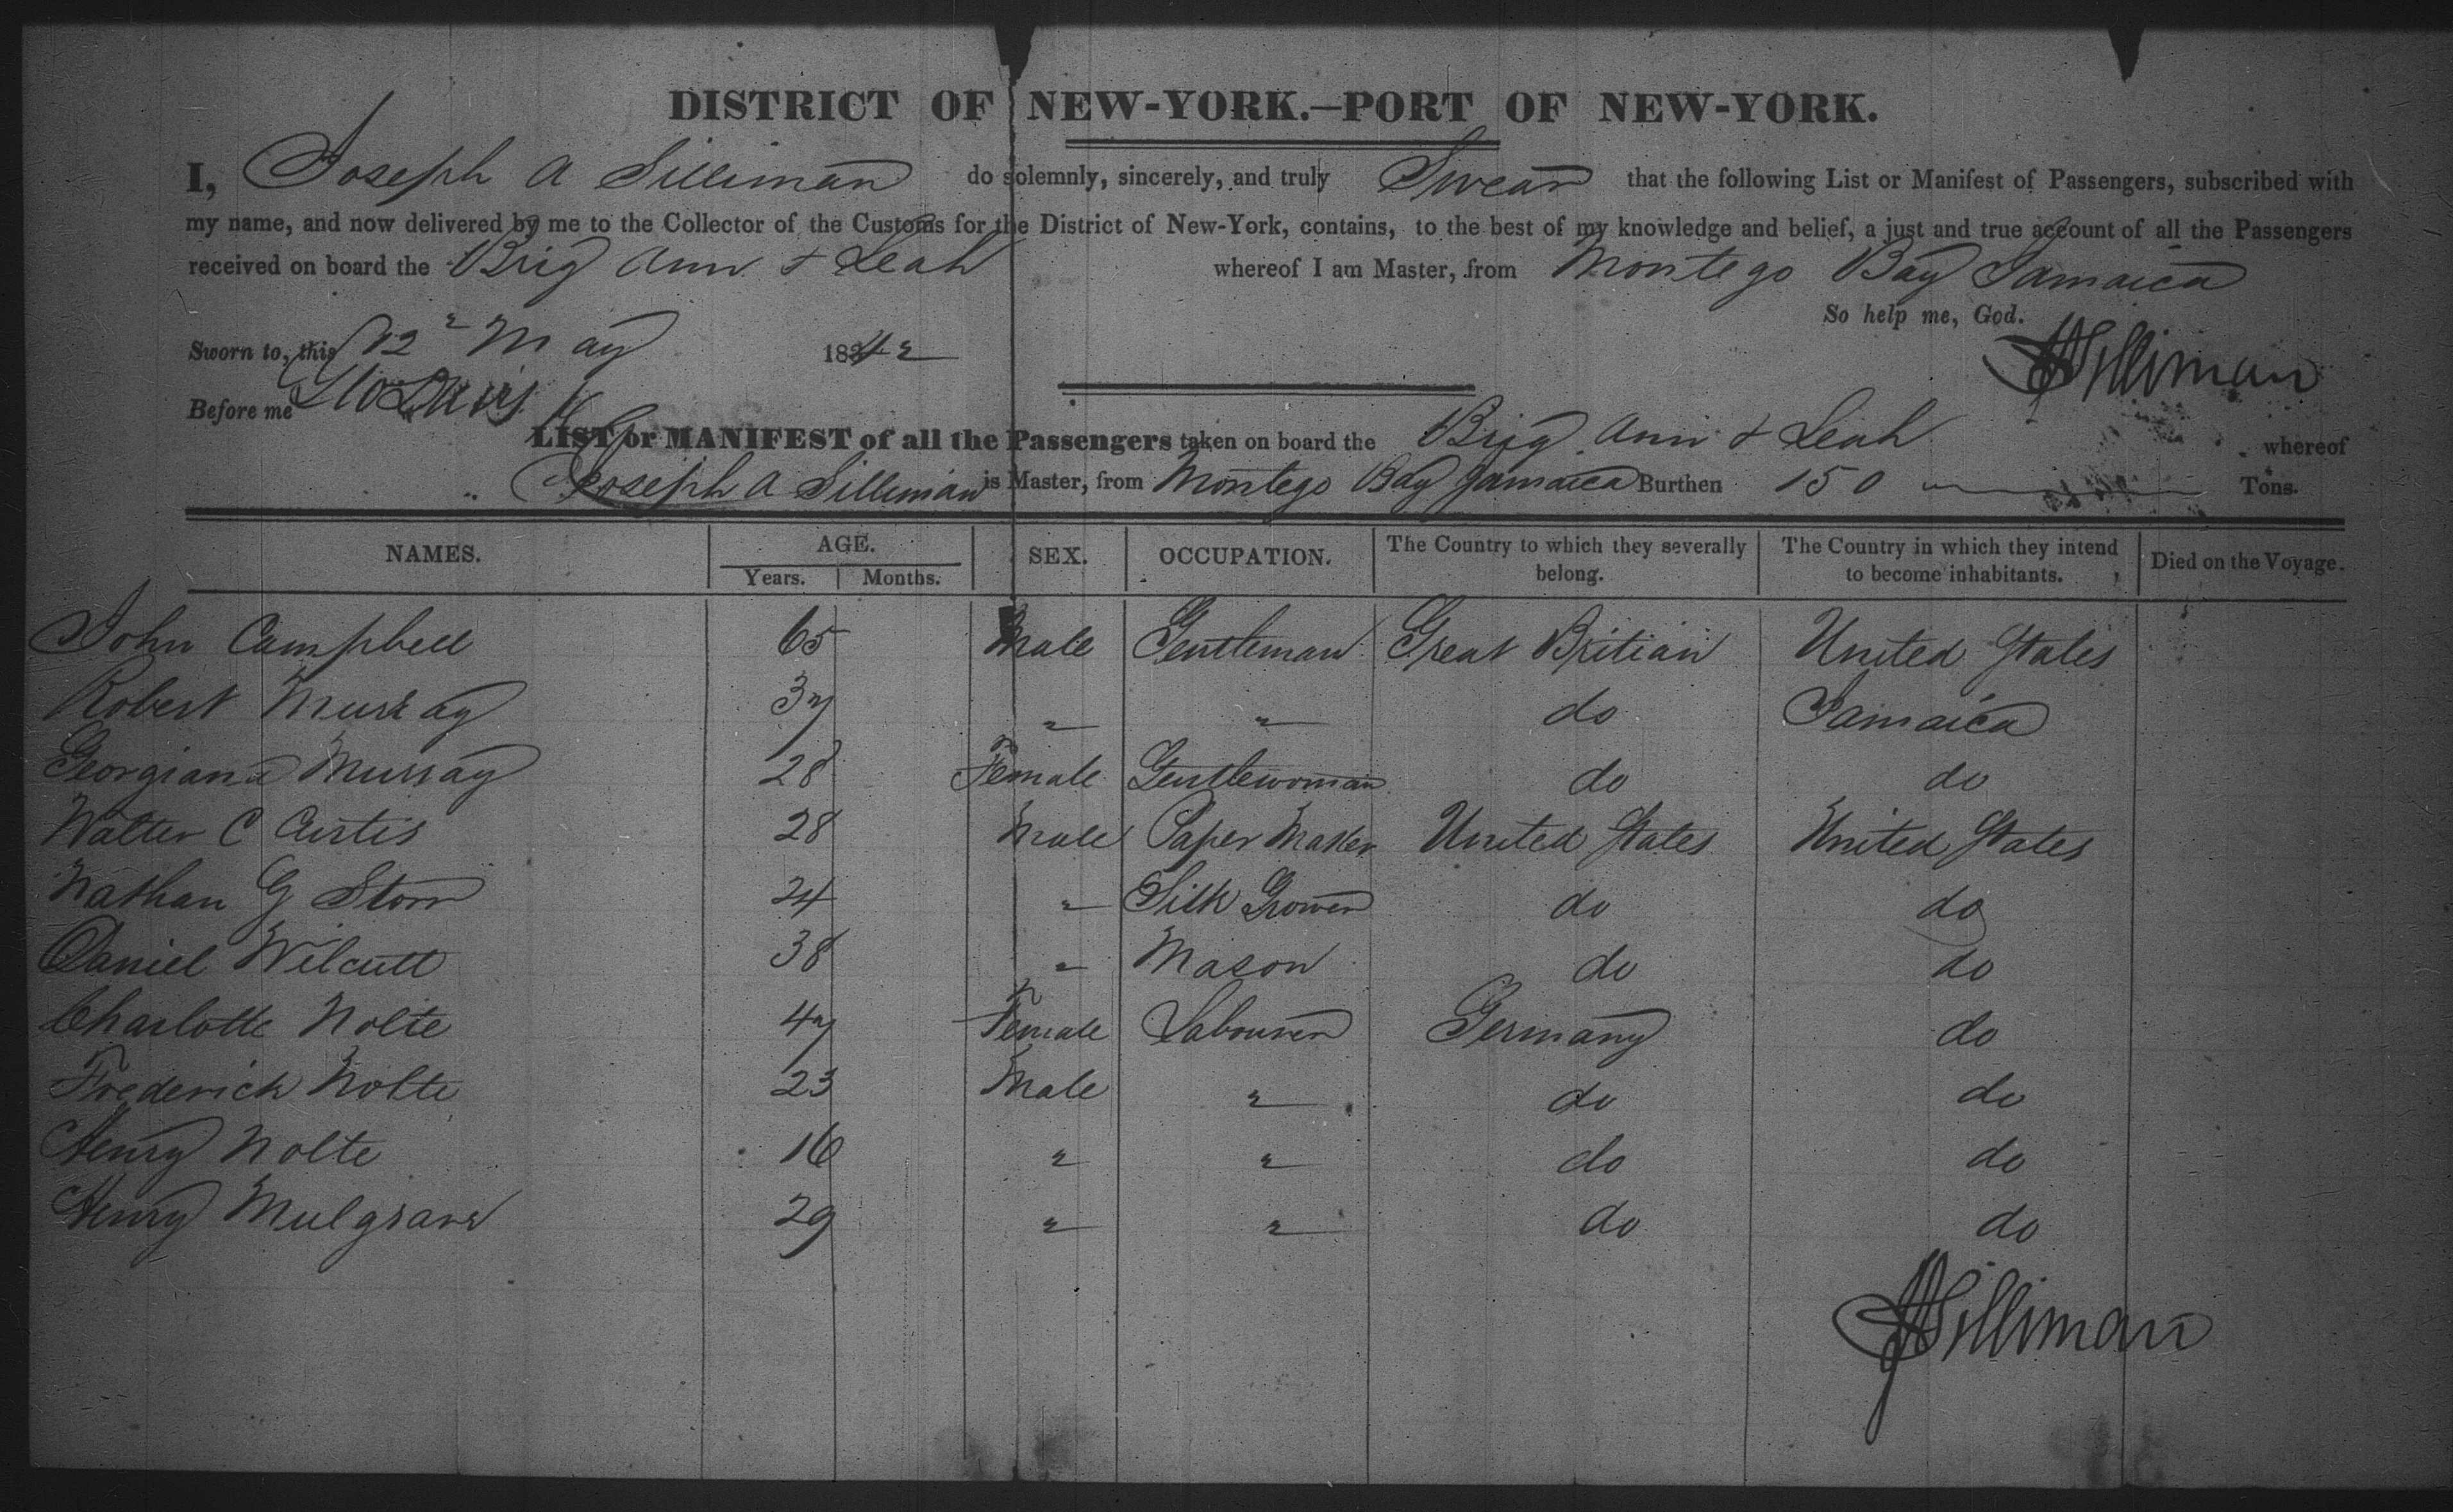 DISTRICT OF NEW-YORK.—PORT OF NEW-YORK.
I, Joseph A Silliman do solemnly, sincerely, and truly Swear that the following List or Manifest of Passengers, subscribed with
my name, and now delivered by me to the Collector of the Customs for the District of New-York, contains, to the best of my knowledge and belief, a just and true account of all the Passengers
received on board the Brig Ann & Leah whereof I am Master, from Montego Bay Jamaica
So help me, God.
Sworn to, this 12 May 1842
JASilliman
Before me
LIST or MANIFEST of all the Passengers taken on board the Brig Ann & Leah whereof
Joseph A Silliman is Master, from Montego Bay Jamaica Burthen 150 Tons.
NAMES. AGE. SEX. OCCUPATION. The Country to which they severally belong. The Country in which they intend to become inhabitants. Died on the Voyage.
Years. Months.
John Campbell 65 Male Gentleman Great Britian United States
Robert Murray 37 " " do Jamaica
Georgiana Murray 28 Female Gentlewoman do do
Walter C Curtis 28 Male Paper Maker United States United States
Nathan G Storr 24 " Silk Grower do do
Daniel Wilcutt 38 " Mason do do
Charlotte Nolte 47 Female Labourer Germany do
Frederick Nolte 23 Male " do do
Henry Nolte 16 " " do do
Henry Mulgrave 29 " " do do
JASilliman